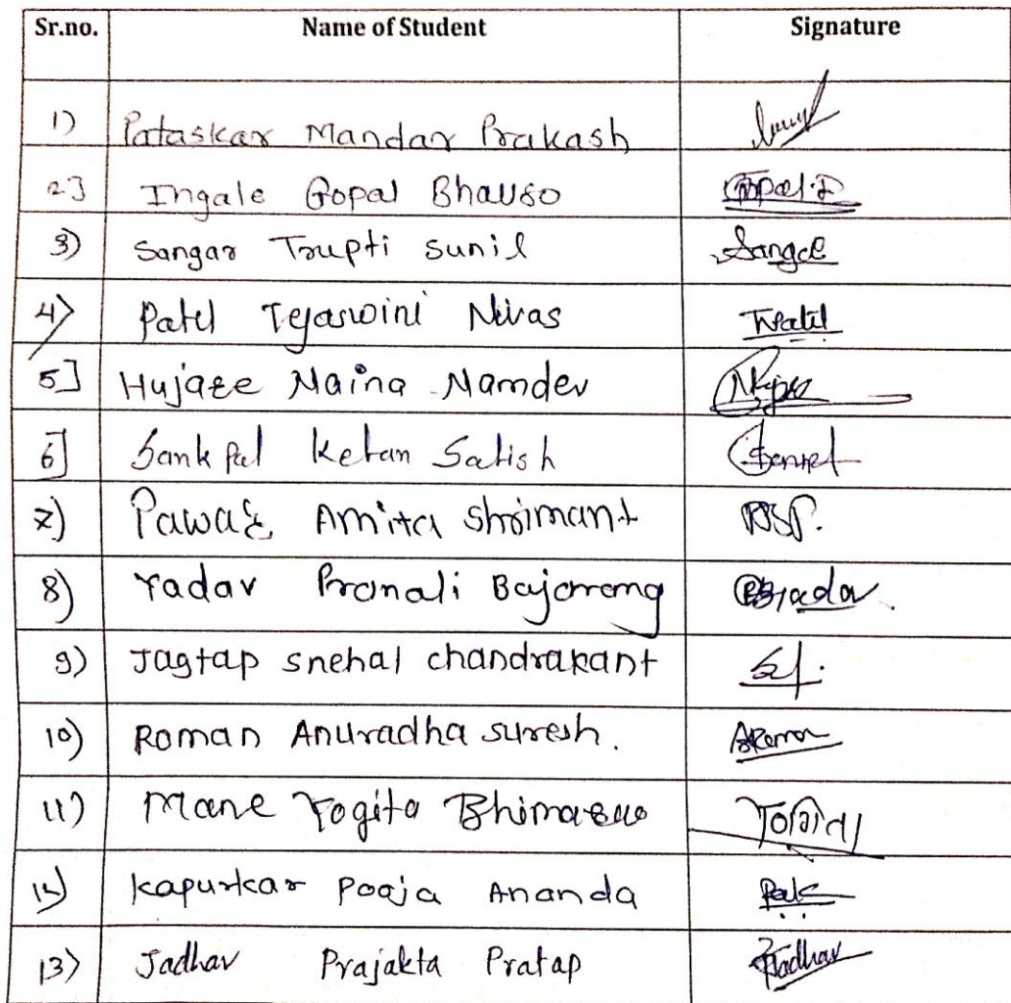 Sr.no. Name of Student Signature
1) Pataskar Mandar Prakash
2] Ingale Gopal Bhauso Gopal.I
3) Sangar Trupti Sunil Sangar
4) Patil Tejaswini Nivas TPatil
5] Hujare Maina Namdev
6] Sankpal Ketan Satish
7) Pawar Amita Shrimant
8) Yadav Pranali Bajarang PBYadav.
9) Jagtap snehal chandrakant
10) Roman Anuradha suresh. ARoman
11) Mane Yogita Bhimarao योगिता
12) Kapurkar Pooja Ananda
13) Jadhav Prajakta Pratap PJadhav